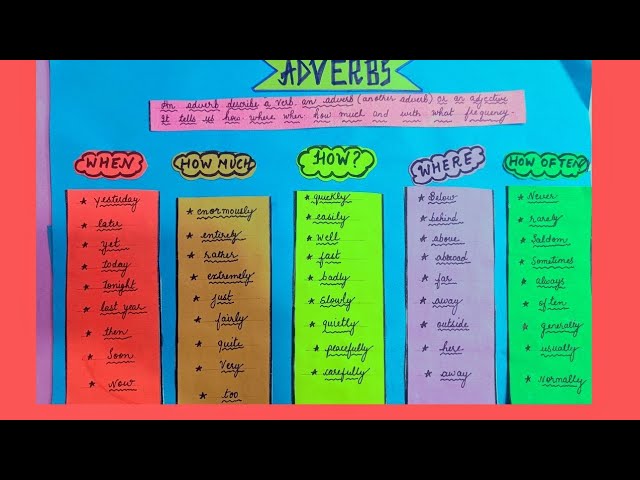 ADVERBS
An adverb describe a verb. an adverb (another adverb) or an adjective
It tells us how where when how much and with what frequency.
WHEN
* Yesterday
* later
* yet
* today
* tonight
* last year
* then
* Soon
* Now
HOW MUCH
* enormously
* entirely
* rather
* extremely
* just
* fairly
* quite
* Very
* too
HOW?
* quickly
* easily
* Well
* fast
* badly
* Slowly
* quietly
* peacefully
* carefully
WHERE
* Below
* behind
* above
* abroad
* far
* away
* outside
* here
* away
HOW OFTEN
* Never
* rarely
* Saldom
* Sometimes
* always
* often
* generally
* usually
* Normally